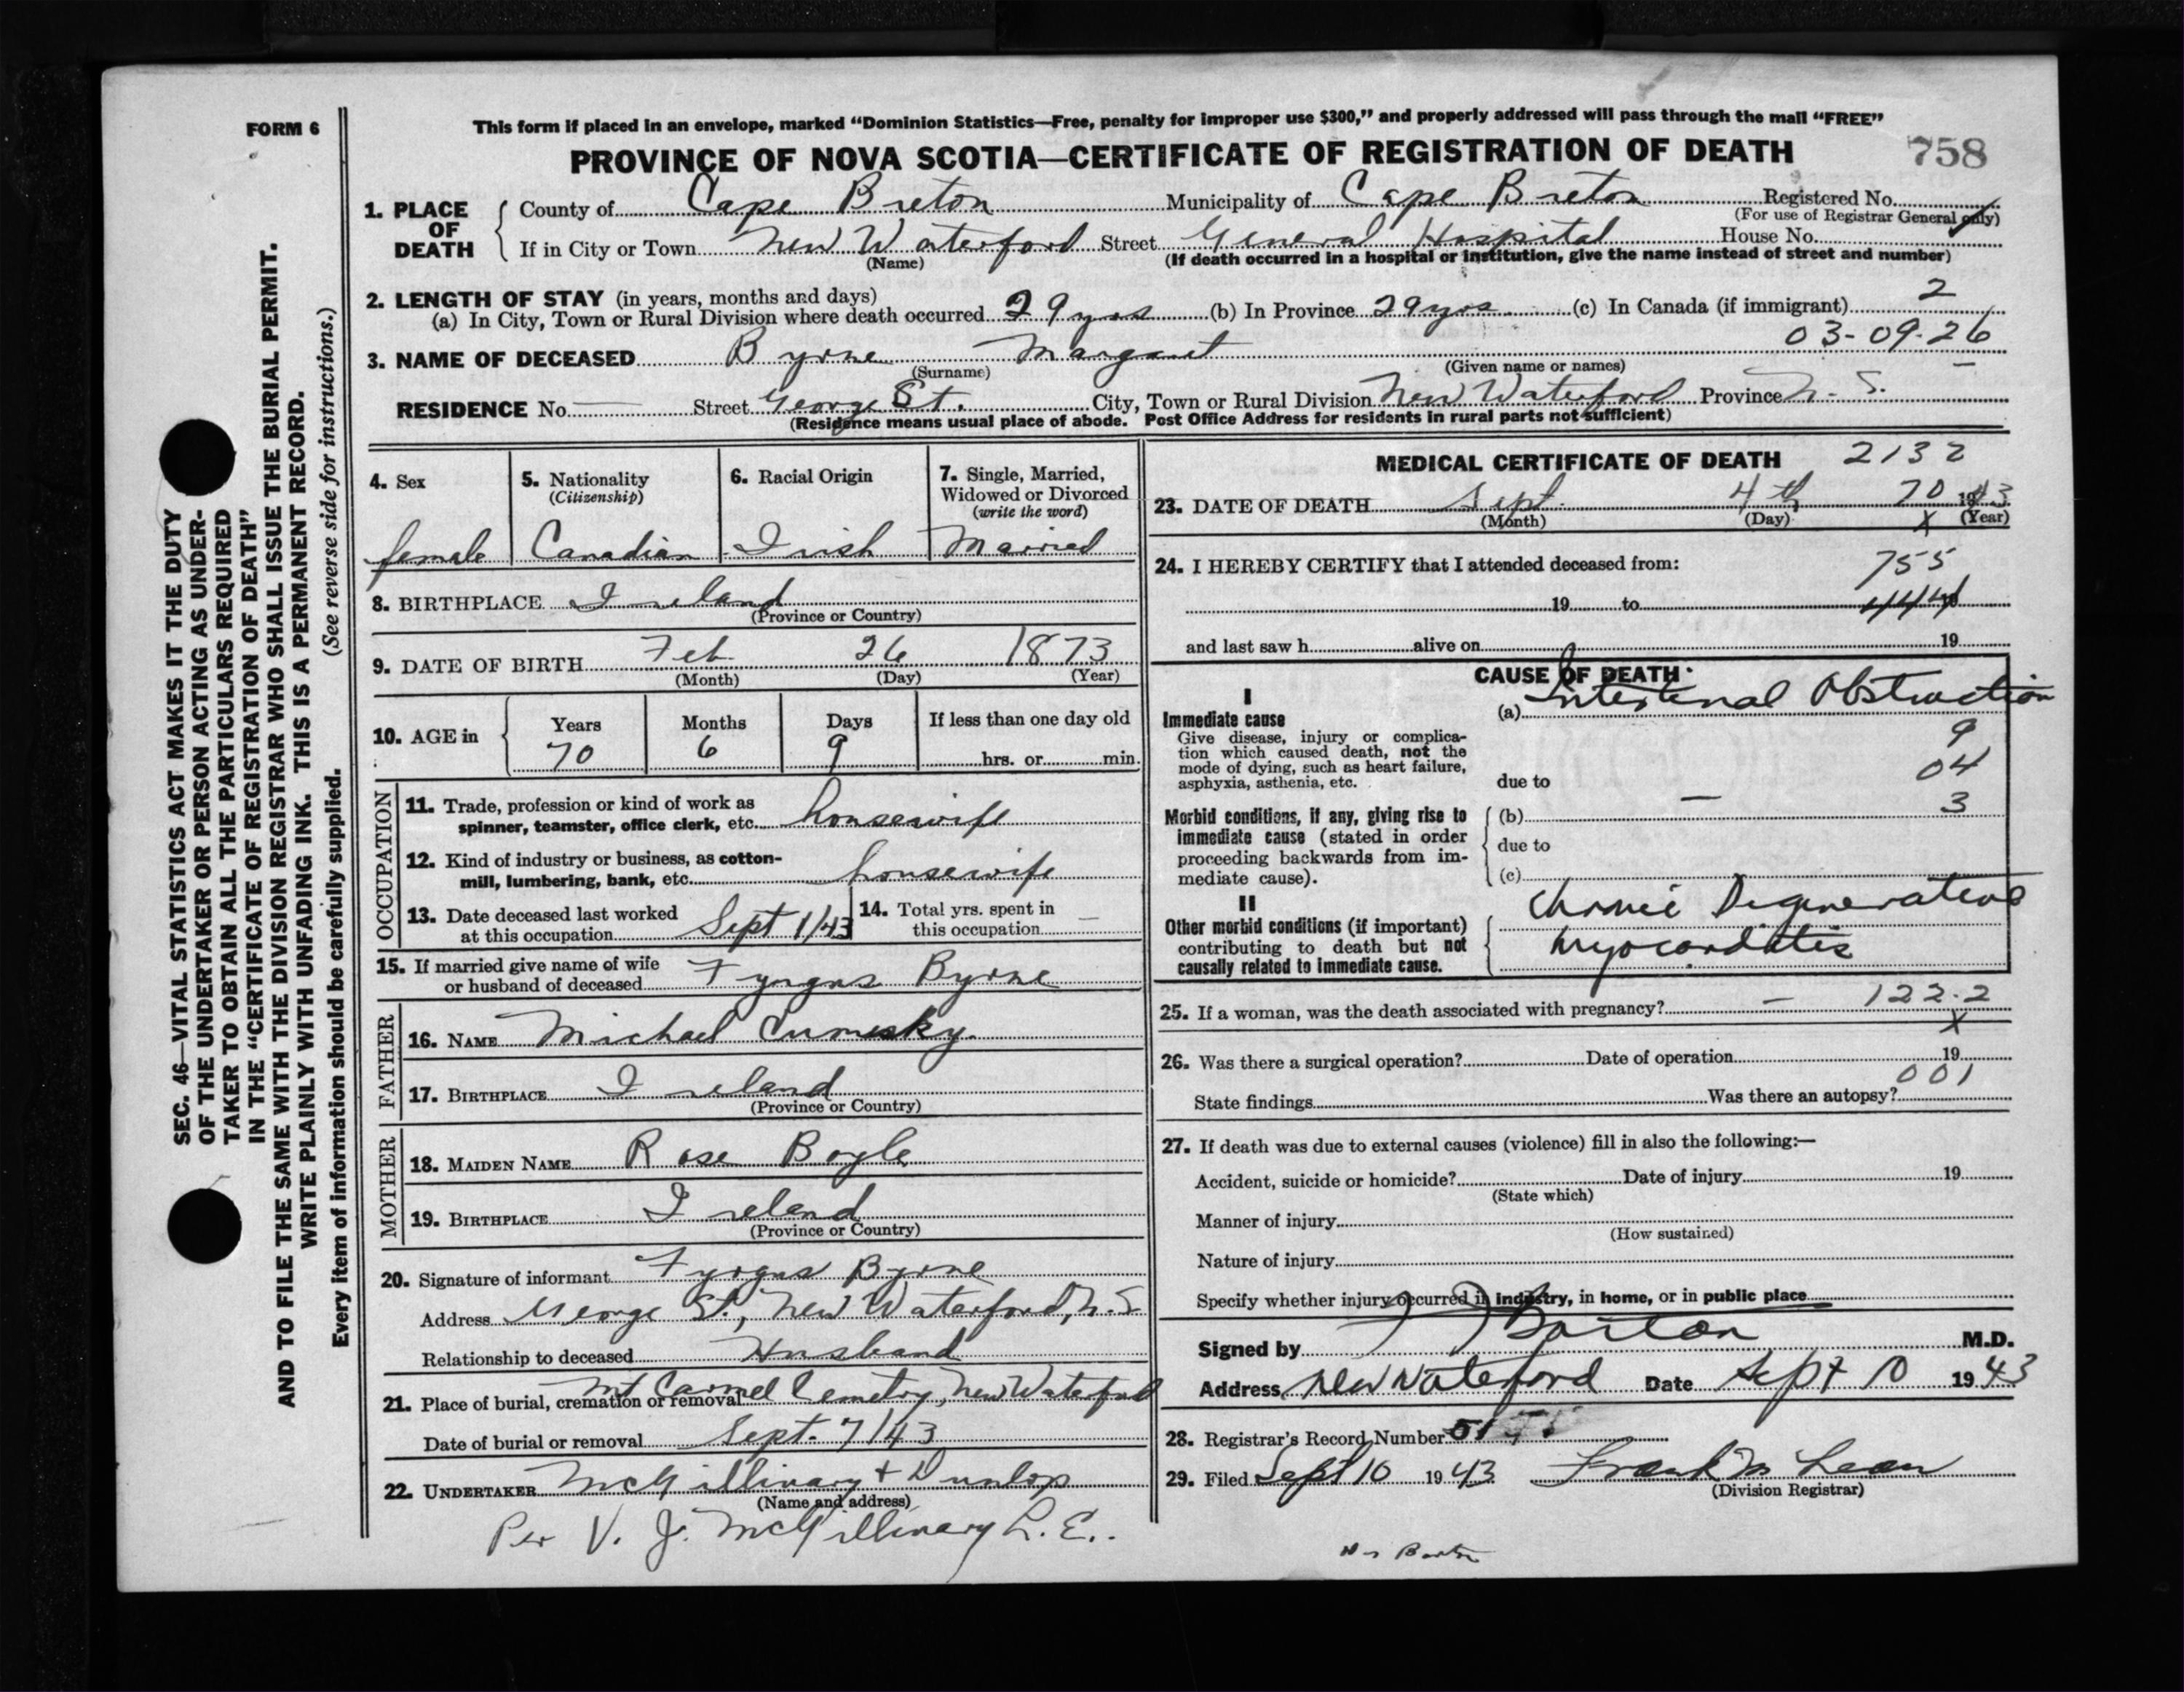 FORM 6
This form if placed in an envelope, marked “Dominion Statistics—Free, penalty for improper use $300,” and properly addressed will pass through the mail “FREE”
PROVINCE OF NOVA SCOTIA—CERTIFICATE OF REGISTRATION OF DEATH 758
1. PLACE OF DEATH
County of Cape Breton Municipality of Cape Breton Registered No.
(For use of Registrar General only)
If in City or Town New Waterford Street General Hospital House No.
(Name) (If death occurred in a hospital or institution, give the name instead of street and number)
2. LENGTH OF STAY (in years, months and days) 2
(a) In City, Town or Rural Division where death occurred 29 yrs (b) In Province 29 yrs (c) In Canada (if immigrant)
03-09-26
3. NAME OF DECEASED Byrne Margaret
(Surname) (Given name or names)
RESIDENCE No. — Street George St. City, Town or Rural Division New Waterford Province N. S.
(Residence means usual place of abode. Post Office Address for residents in rural parts not sufficient)
4. Sex
female
5. Nationality
(Citizenship)
Canadian
6. Racial Origin
Irish
7. Single, Married,
Widowed or Divorced
(write the word)
Married
8. BIRTHPLACE Ireland
(Province or Country)
9. DATE OF BIRTH Feb 26 1873
(Month) (Day) (Year)
10. AGE in Years Months Days If less than one day old
70 6 9 hrs. or min.
OCCUPATION
11. Trade, profession or kind of work as
spinner, teamster, office clerk, etc. housewife
12. Kind of industry or business, as cotton-
mill, lumbering, bank, etc. housewife
13. Date deceased last worked
at this occupation Sept 1/43
14. Total yrs. spent in
this occupation —
15. If married give name of wife
or husband of deceased Fyrgus Byrne
FATHER
16. NAME Michael Cumesky
17. BIRTHPLACE Ireland
(Province or Country)
MOTHER
18. MAIDEN NAME Rose Boyle
19. BIRTHPLACE Ireland
(Province or Country)
20. Signature of informant Fyrgus Byrne
Address George St., New Waterford, N. S
Relationship to deceased Husband
21. Place of burial, cremation or removal Mt Carmel Cemetry, New Waterford
Date of burial or removal Sept. 7/43
22. UNDERTAKER McGillivary + Dunlop
(Name and address)
Per V. J. McGillivary L. E..
MEDICAL CERTIFICATE OF DEATH 2132
23. DATE OF DEATH Sept. 4th 70 1943
(Month) (Day) X (Year)
24. I HEREBY CERTIFY that I attended deceased from: 755
19 to
and last saw h alive on 19
CAUSE OF DEATH
I
Immediate cause
Give disease, injury or complica-
tion which caused death, not the
mode of dying, such as heart failure,
asphyxia, asthenia, etc.
(a) Intestinal Obstruction
9
04
due to
3
Morbid conditions, if any, giving rise to
immediate cause (stated in order
proceeding backwards from im-
mediate cause).
(b) —
due to
(c)
II
Other morbid conditions (if important)
contributing to death but not
causally related to immediate cause.
Chronic Degenerative
Myocarditis
25. If a woman, was the death associated with pregnancy? — 122.2
X
26. Was there a surgical operation? Date of operation 19
001
State findings Was there an autopsy?
27. If death was due to external causes (violence) fill in also the following:—
Accident, suicide or homicide? Date of injury 19
(State which)
Manner of injury
(How sustained)
Nature of injury
Specify whether injury occurred in industry, in home, or in public place
Signed by Barton M.D.
Address New Waterford Date Sept 10 1943
28. Registrar's Record Number
29. Filed Sept 10 1943 Frank McLean
(Division Registrar)
Dr Barton
SEC. 46—VITAL STATISTICS ACT MAKES IT THE DUTY
OF THE UNDERTAKER OR PERSON ACTING AS UNDER-
TAKER TO OBTAIN ALL THE PARTICULARS REQUIRED
IN THE “CERTIFICATE OF REGISTRATION OF DEATH”
AND TO FILE THE SAME WITH THE DIVISION REGISTRAR WHO SHALL ISSUE THE BURIAL PERMIT.
WRITE PLAINLY WITH UNFADING INK. THIS IS A PERMANENT RECORD.
Every item of information should be carefully supplied. (See reverse side for instructions.)